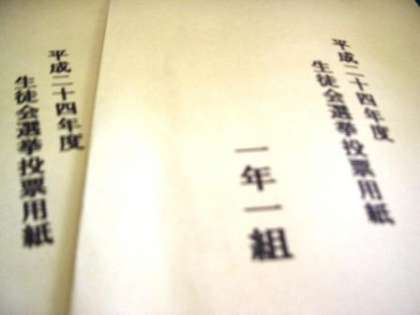 平成二十四年度
生徒会選挙投票用紙
一年一組
平成二十四年度
生徒会選挙投票用紙